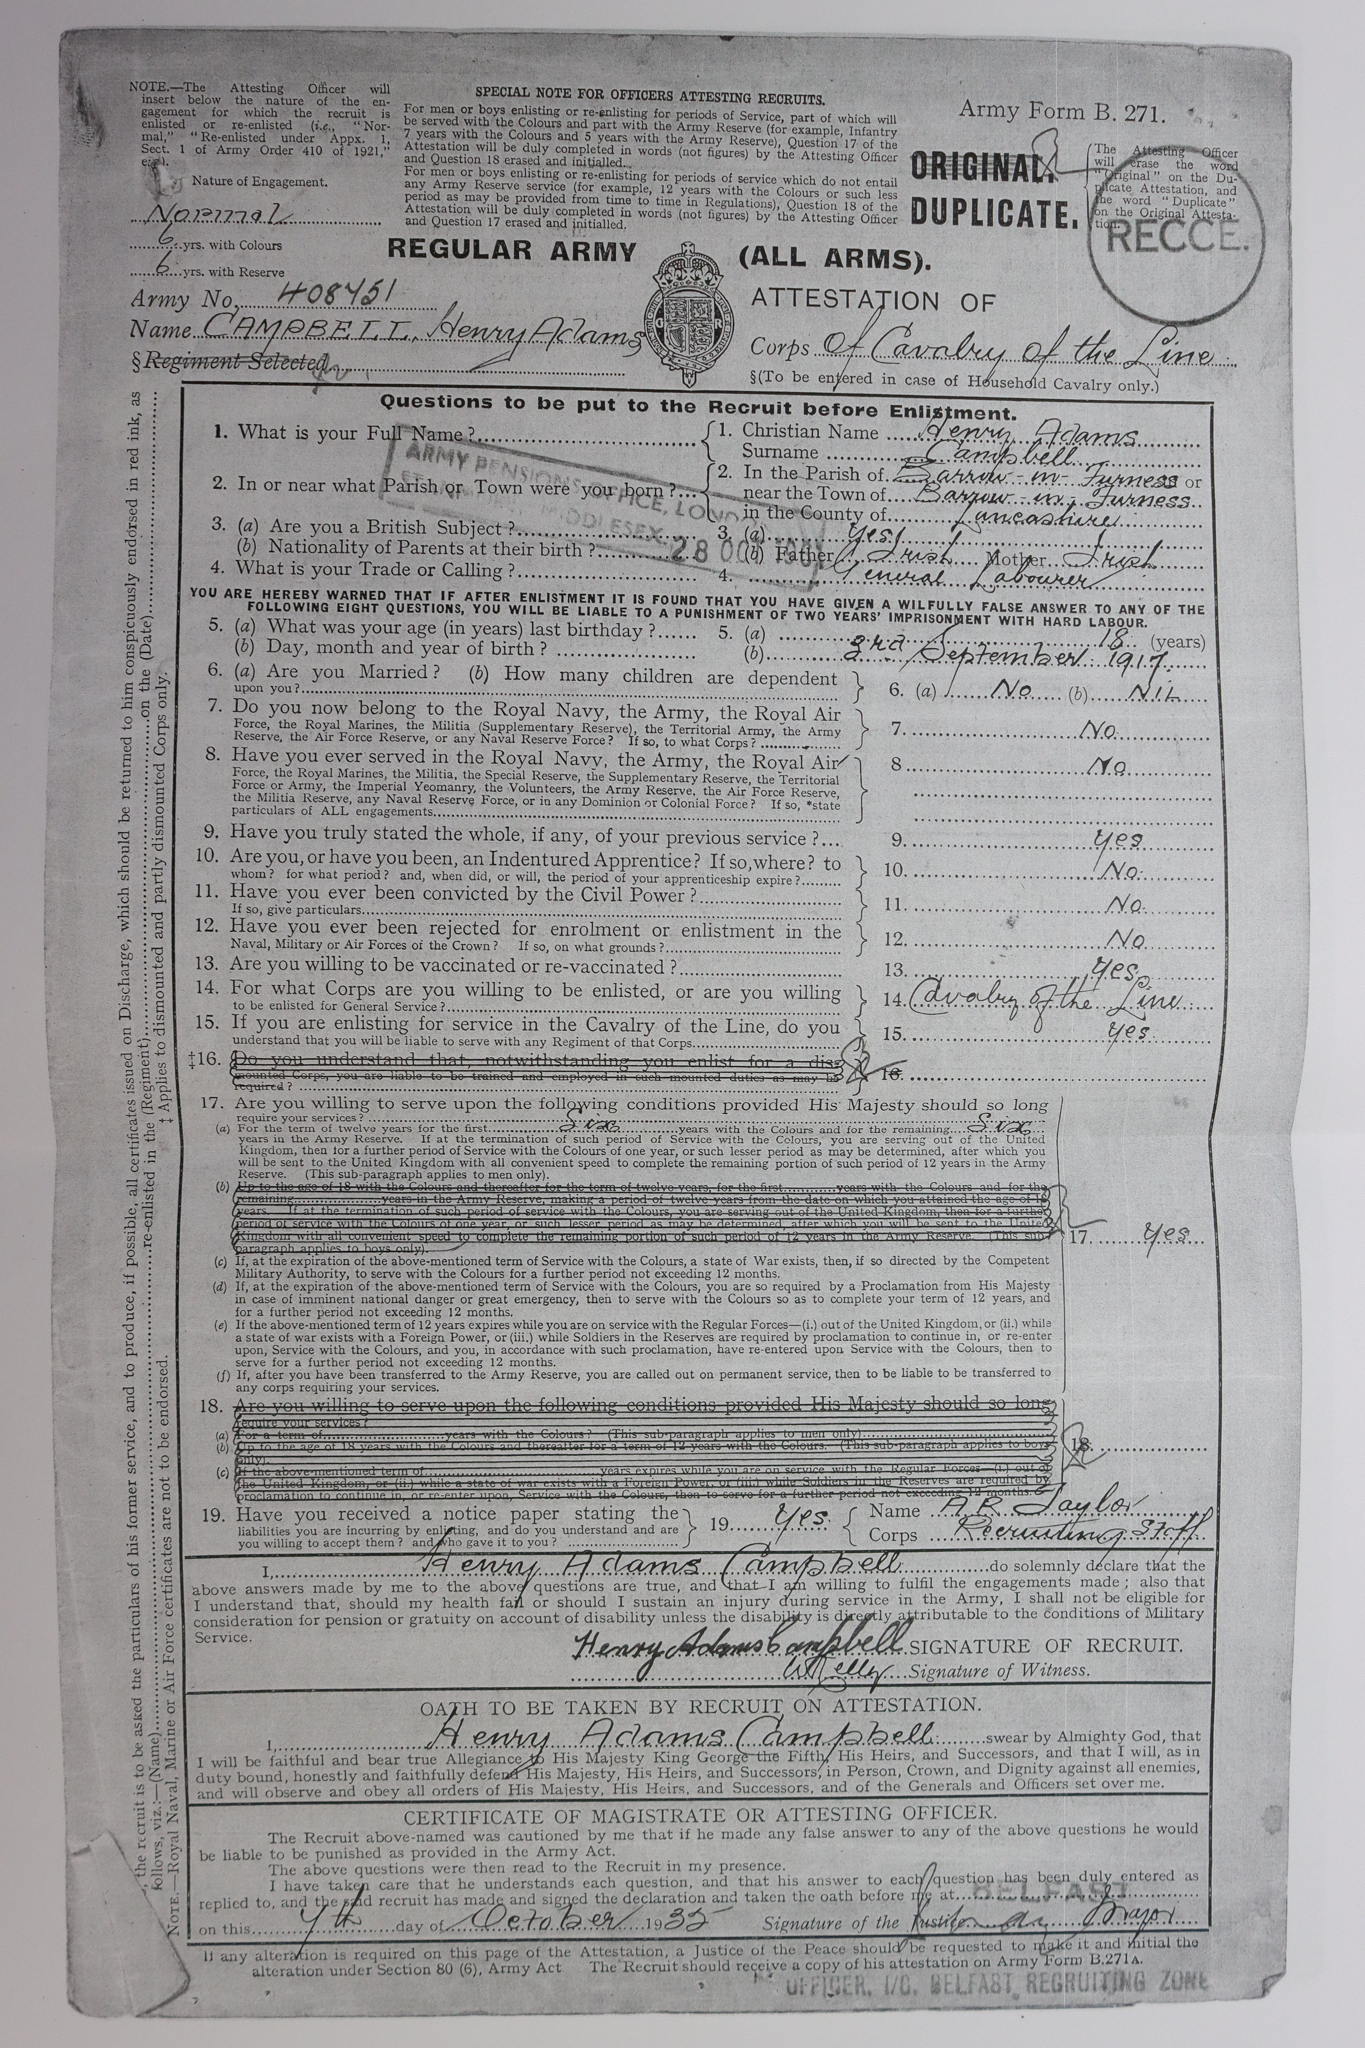 NOTE.—The Attesting Officer will
insert below the nature of the en-
gagement for which the recruit is
enlisted or re-enlisted (i.e., "Nor-
mal," "Re-enlisted under Appx. 1,
Sect. 1 of Army Order 410 of 1921,"
etc.).
Nature of Engagement.
Normal
6 yrs. with Colours
6 yrs. with Reserve
SPECIAL NOTE FOR OFFICERS ATTESTING RECRUITS.
For men or boys enlisting or re-enlisting for periods of Service, part of which will
be served with the Colours and part with the Army Reserve (for example, Infantry
7 years with the Colours and 5 years with the Army Reserve), Question 17 of the
Attestation will be duly completed in words (not figures) by the Attesting Officer
and Question 18 erased and initialled.
For men or boys enlisting or re-enlisting for periods of service which do not entail
any Army Reserve service (for example, 12 years with the Colours or such less
period as may be provided from time to time in Regulations), Question 18 of the
Attestation will be duly completed in words (not figures) by the Attesting Officer
and Question 17 erased and initialled.
Army Form B. 271.
ORIGINAL.
DUPLICATE.
The Attesting Officer
will erase the word
"Original" on the Du-
plicate Attestation, and
the word "Duplicate"
on the Original Attesta-
tion.
RECCE.
REGULAR ARMY (ALL ARMS).
Army No. 408451
ATTESTATION OF
Name CAMPBELL, Henry Adams
G R
Corps of Cavalry of the Line
§ Regiment Selected
§(To be entered in case of Household Cavalry only.)
Questions to be put to the Recruit before Enlistment.
1. What is your Full Name? 1. Christian Name Henry Adams
Surname Campbell
2. In or near what Parish or Town were you born? 2. In the Parish of Barrow-in-Furness or
near the Town of Barrow-in-Furness
in the County of Lancashire
ARMY PENSIONS OFFICE, LONDON
MIDDLESEX
28 OC
3. (a) Are you a British Subject? 3. (a) Yes
(b) Nationality of Parents at their birth? (b) Father Irish Mother Irish
4. What is your Trade or Calling? 4. General Labourer
YOU ARE HEREBY WARNED THAT IF AFTER ENLISTMENT IT IS FOUND THAT YOU HAVE GIVEN A WILFULLY FALSE ANSWER TO ANY OF THE
FOLLOWING EIGHT QUESTIONS, YOU WILL BE LIABLE TO A PUNISHMENT OF TWO YEARS' IMPRISONMENT WITH HARD LABOUR.
5. (a) What was your age (in years) last birthday? 5. (a) 18 (years)
(b) Day, month and year of birth? (b) 3rd September 1917
6. (a) Are you Married? (b) How many children are dependent
upon you? 6. (a) No (b) Nil
7. Do you now belong to the Royal Navy, the Army, the Royal Air
Force, the Royal Marines, the Militia (Supplementary Reserve), the Territorial Army, the Army
Reserve, the Air Force Reserve, or any Naval Reserve Force? If so, to what Corps? 7. No
8. Have you ever served in the Royal Navy, the Army, the Royal Air 8 No
Force, the Royal Marines, the Militia, the Special Reserve, the Supplementary Reserve, the Territorial
Force or Army, the Imperial Yeomanry, the Volunteers, the Army Reserve, the Air Force Reserve,
the Militia Reserve, any Naval Reserve Force, or in any Dominion or Colonial Force? If so, *state
particulars of ALL engagements
9. Have you truly stated the whole, if any, of your previous service? 9. Yes
10. Are you, or have you been, an Indentured Apprentice? If so, where? to
whom? for what period? and, when did, or will, the period of your apprenticeship expire? 10. No
11. Have you ever been convicted by the Civil Power?
If so, give particulars 11. No
12. Have you ever been rejected for enrolment or enlistment in the
Naval, Military or Air Forces of the Crown? If so, on what grounds? 12. No
13. Are you willing to be vaccinated or re-vaccinated? 13. Yes
14. For what Corps are you willing to be enlisted, or are you willing
to be enlisted for General Service? 14. Cavalry of the Line
15. If you are enlisting for service in the Cavalry of the Line, do you
understand that you will be liable to serve with any Regiment of that Corps 15. Yes
‡16. Do you understand that, notwithstanding you enlist for a dis-
mounted Corps, you are liable to be trained and employed in such mounted duties as may be
required? 16.
17. Are you willing to serve upon the following conditions provided His Majesty should so long
require your services?
(a) For the term of twelve years for the first Six years with the Colours and for the remaining Six
years in the Army Reserve. If at the termination of such period of Service with the Colours, you are serving out of the United
Kingdom, then for a further period of Service with the Colours of one year, or such lesser period as may be determined, after which you
will be sent to the United Kingdom with all convenient speed to complete the remaining portion of such period of 12 years in the Army
Reserve. (This sub-paragraph applies to men only).
(b) Up to the age of 18 with the Colours and thereafter for the term of twelve years, for the first years with the Colours and for the
remaining years in the Army Reserve, making a period of twelve years from the date on which you attained the age of 18
years. If at the termination of such period of service with the Colours, you are serving out of the United Kingdom, then for a further
period of service with the Colours of one year, or such lesser period as may be determined, after which you will be sent to the United
Kingdom with all convenient speed to complete the remaining portion of such period of 12 years in the Army Reserve. (This sub-
paragraph applies to boys only).
17. Yes
(c) If, at the expiration of the above-mentioned term of Service with the Colours, a state of War exists, then, if so directed by the Competent
Military Authority, to serve with the Colours for a further period not exceeding 12 months.
(d) If, at the expiration of the above-mentioned term of Service with the Colours, you are so required by a Proclamation from His Majesty
in case of imminent national danger or great emergency, then to serve with the Colours so as to complete your term of 12 years, and
for a further period not exceeding 12 months.
(e) If the above-mentioned term of 12 years expires while you are on service with the Regular Forces—(i.) out of the United Kingdom, or (ii.) while
a state of war exists with a Foreign Power, or (iii.) while Soldiers in the Reserves are required by proclamation to continue in, or re-enter
upon, Service with the Colours, and you, in accordance with such proclamation, have re-entered upon Service with the Colours, then to
serve for a further period not exceeding 12 months.
(f) If, after you have been transferred to the Army Reserve, you are called out on permanent service, then to be liable to be transferred to
any corps requiring your services.
18. Are you willing to serve upon the following conditions provided His Majesty should so long
require your services?
(a) For a term of years with the Colours? (This sub-paragraph applies to men only)
(b) Up to the age of 18 years with the Colours and thereafter for a term of 12 years with the Colours. (This sub-paragraph applies to boys
only).
18.
(c) If the above-mentioned term of years expires while you are on service with the Regular Forces—(i.) out of
the United Kingdom, or (ii.) while a state of war exists with a Foreign Power, or (iii.) while Soldiers in the Reserves are required by
proclamation to continue in, or re-enter upon, Service with the Colours, then to serve for a further period not exceeding 12 months.
19. Have you received a notice paper stating the
liabilities you are incurring by enlisting, and do you understand and are
you willing to accept them? and who gave it to you? 19. Yes
Name A.R. Taylor
Corps Recruiting Staff
I, Henry Adams Campbell do solemnly declare that the
above answers made by me to the above questions are true, and that I am willing to fulfil the engagements made; also that
I understand that, should my health fail or should I sustain an injury during service in the Army, I shall not be eligible for
consideration for pension or gratuity on account of disability unless the disability is directly attributable to the conditions of Military
Service.
Henry Adams Campbell SIGNATURE OF RECRUIT.
Signature of Witness.
OATH TO BE TAKEN BY RECRUIT ON ATTESTATION.
I, Henry Adams Campbell swear by Almighty God, that
I will be faithful and bear true Allegiance to His Majesty King George the Fifth, His Heirs, and Successors, and that I will, as in
duty bound, honestly and faithfully defend His Majesty, His Heirs, and Successors, in Person, Crown, and Dignity against all enemies,
and will observe and obey all orders of His Majesty, His Heirs, and Successors, and of the Generals and Officers set over me.
CERTIFICATE OF MAGISTRATE OR ATTESTING OFFICER.
The Recruit above-named was cautioned by me that if he made any false answer to any of the above questions he would
be liable to be punished as provided in the Army Act.
The above questions were then read to the Recruit in my presence.
I have taken care that he understands each question, and that his answer to each question has been duly entered as
replied to, and the said recruit has made and signed the declaration and taken the oath before me at BELFAST
on this 7th day of October 1935 Signature of the Justice Major
If any alteration is required on this page of the Attestation, a Justice of the Peace should be requested to make it and initial the
alteration under Section 80 (6), Army Act The Recruit should receive a copy of his attestation on Army Form B.271A.
OFFICER. I/C. BELFAST RECRUITING ZONE
, the recruit is to be asked the particulars of his former service, and to produce, if possible, all certificates issued on Discharge, which should be returned to him conspicuously endorsed in red ink, as
follows, viz.:—(Name) re-enlisted in the (Regiment) on the (Date)
NOTE.—Royal Naval, Marine or Air Force certificates are not to be endorsed. ‡ Applies to dismounted and partly dismounted Corps only.